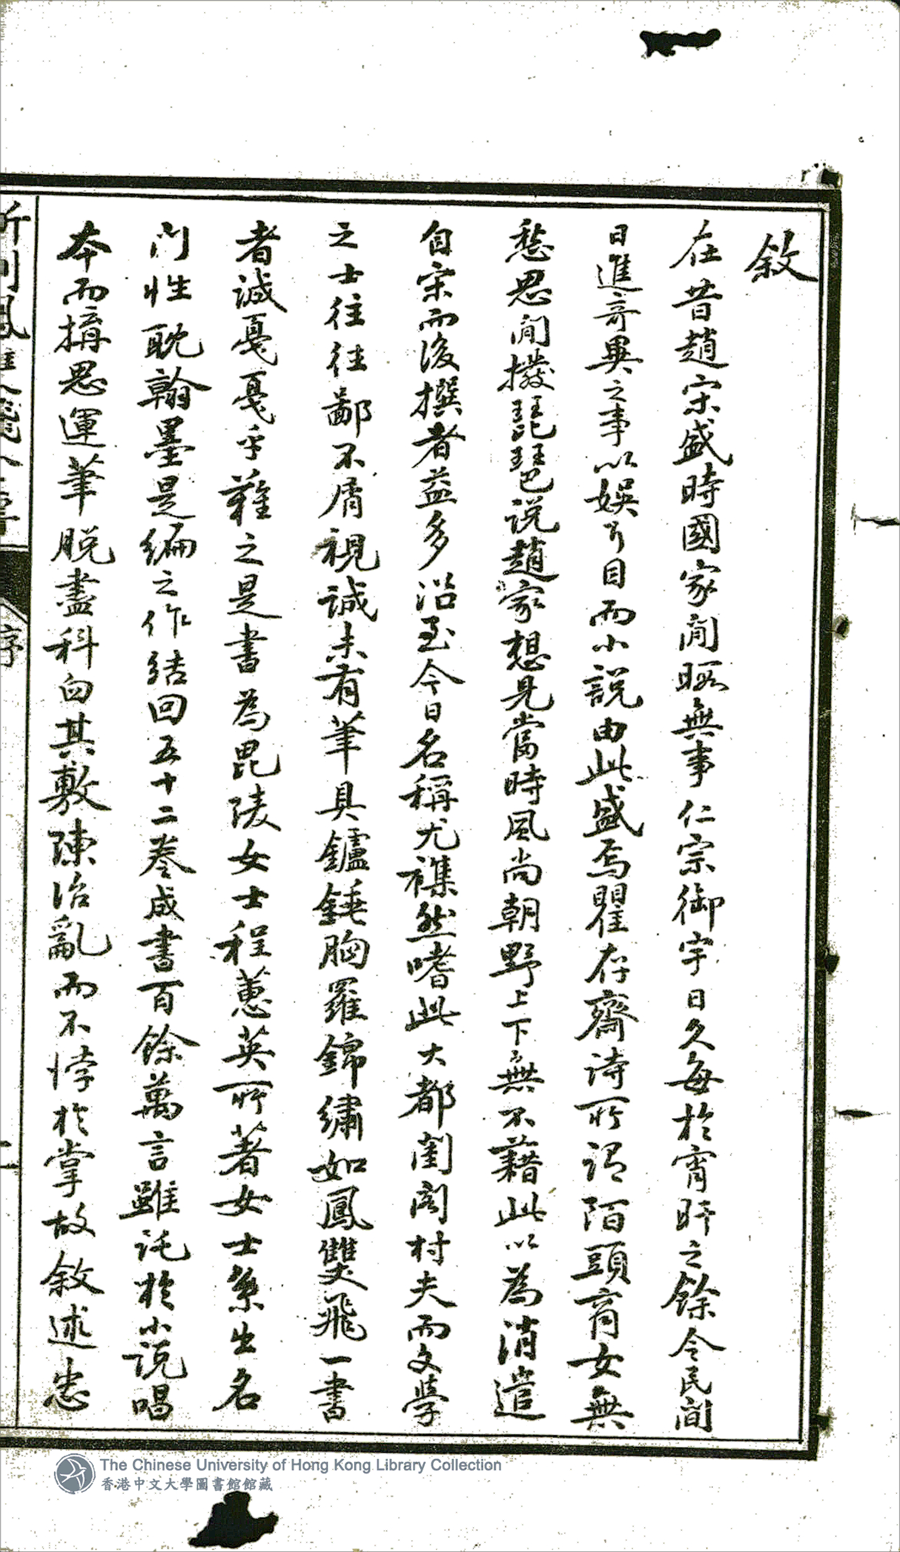 敘
在昔趙宋盛時國家閒暇無事仁宗御宇日久每於宵旰之餘令民間
日進奇異之事以娛耳目而小說由此盛焉瞿存齋詩所謂陌頭盲女無
愁思閒撥琵琶說趙家想見當時風尚朝野上下無不藉此以為消遣
自宋而後撰者益多沿至今日名稱尤襍然嗜此大都閨閣村夫而文學
之士往往鄙不屑視誠未有筆具鑪錘胸羅錦繡如鳳雙飛一書
者誠戛戛乎難之是書為毘陵女士程蕙英所著女士系出名
門性耽翰墨是編之作結回五十二卷成書百餘萬言雖託於小說唱
本而搆思運筆脫盡科臼其敷陳治亂而不悖於掌故敘述忠
序
The Chinese University of Hong Kong Library Collection
香港中文大學圖書館館藏